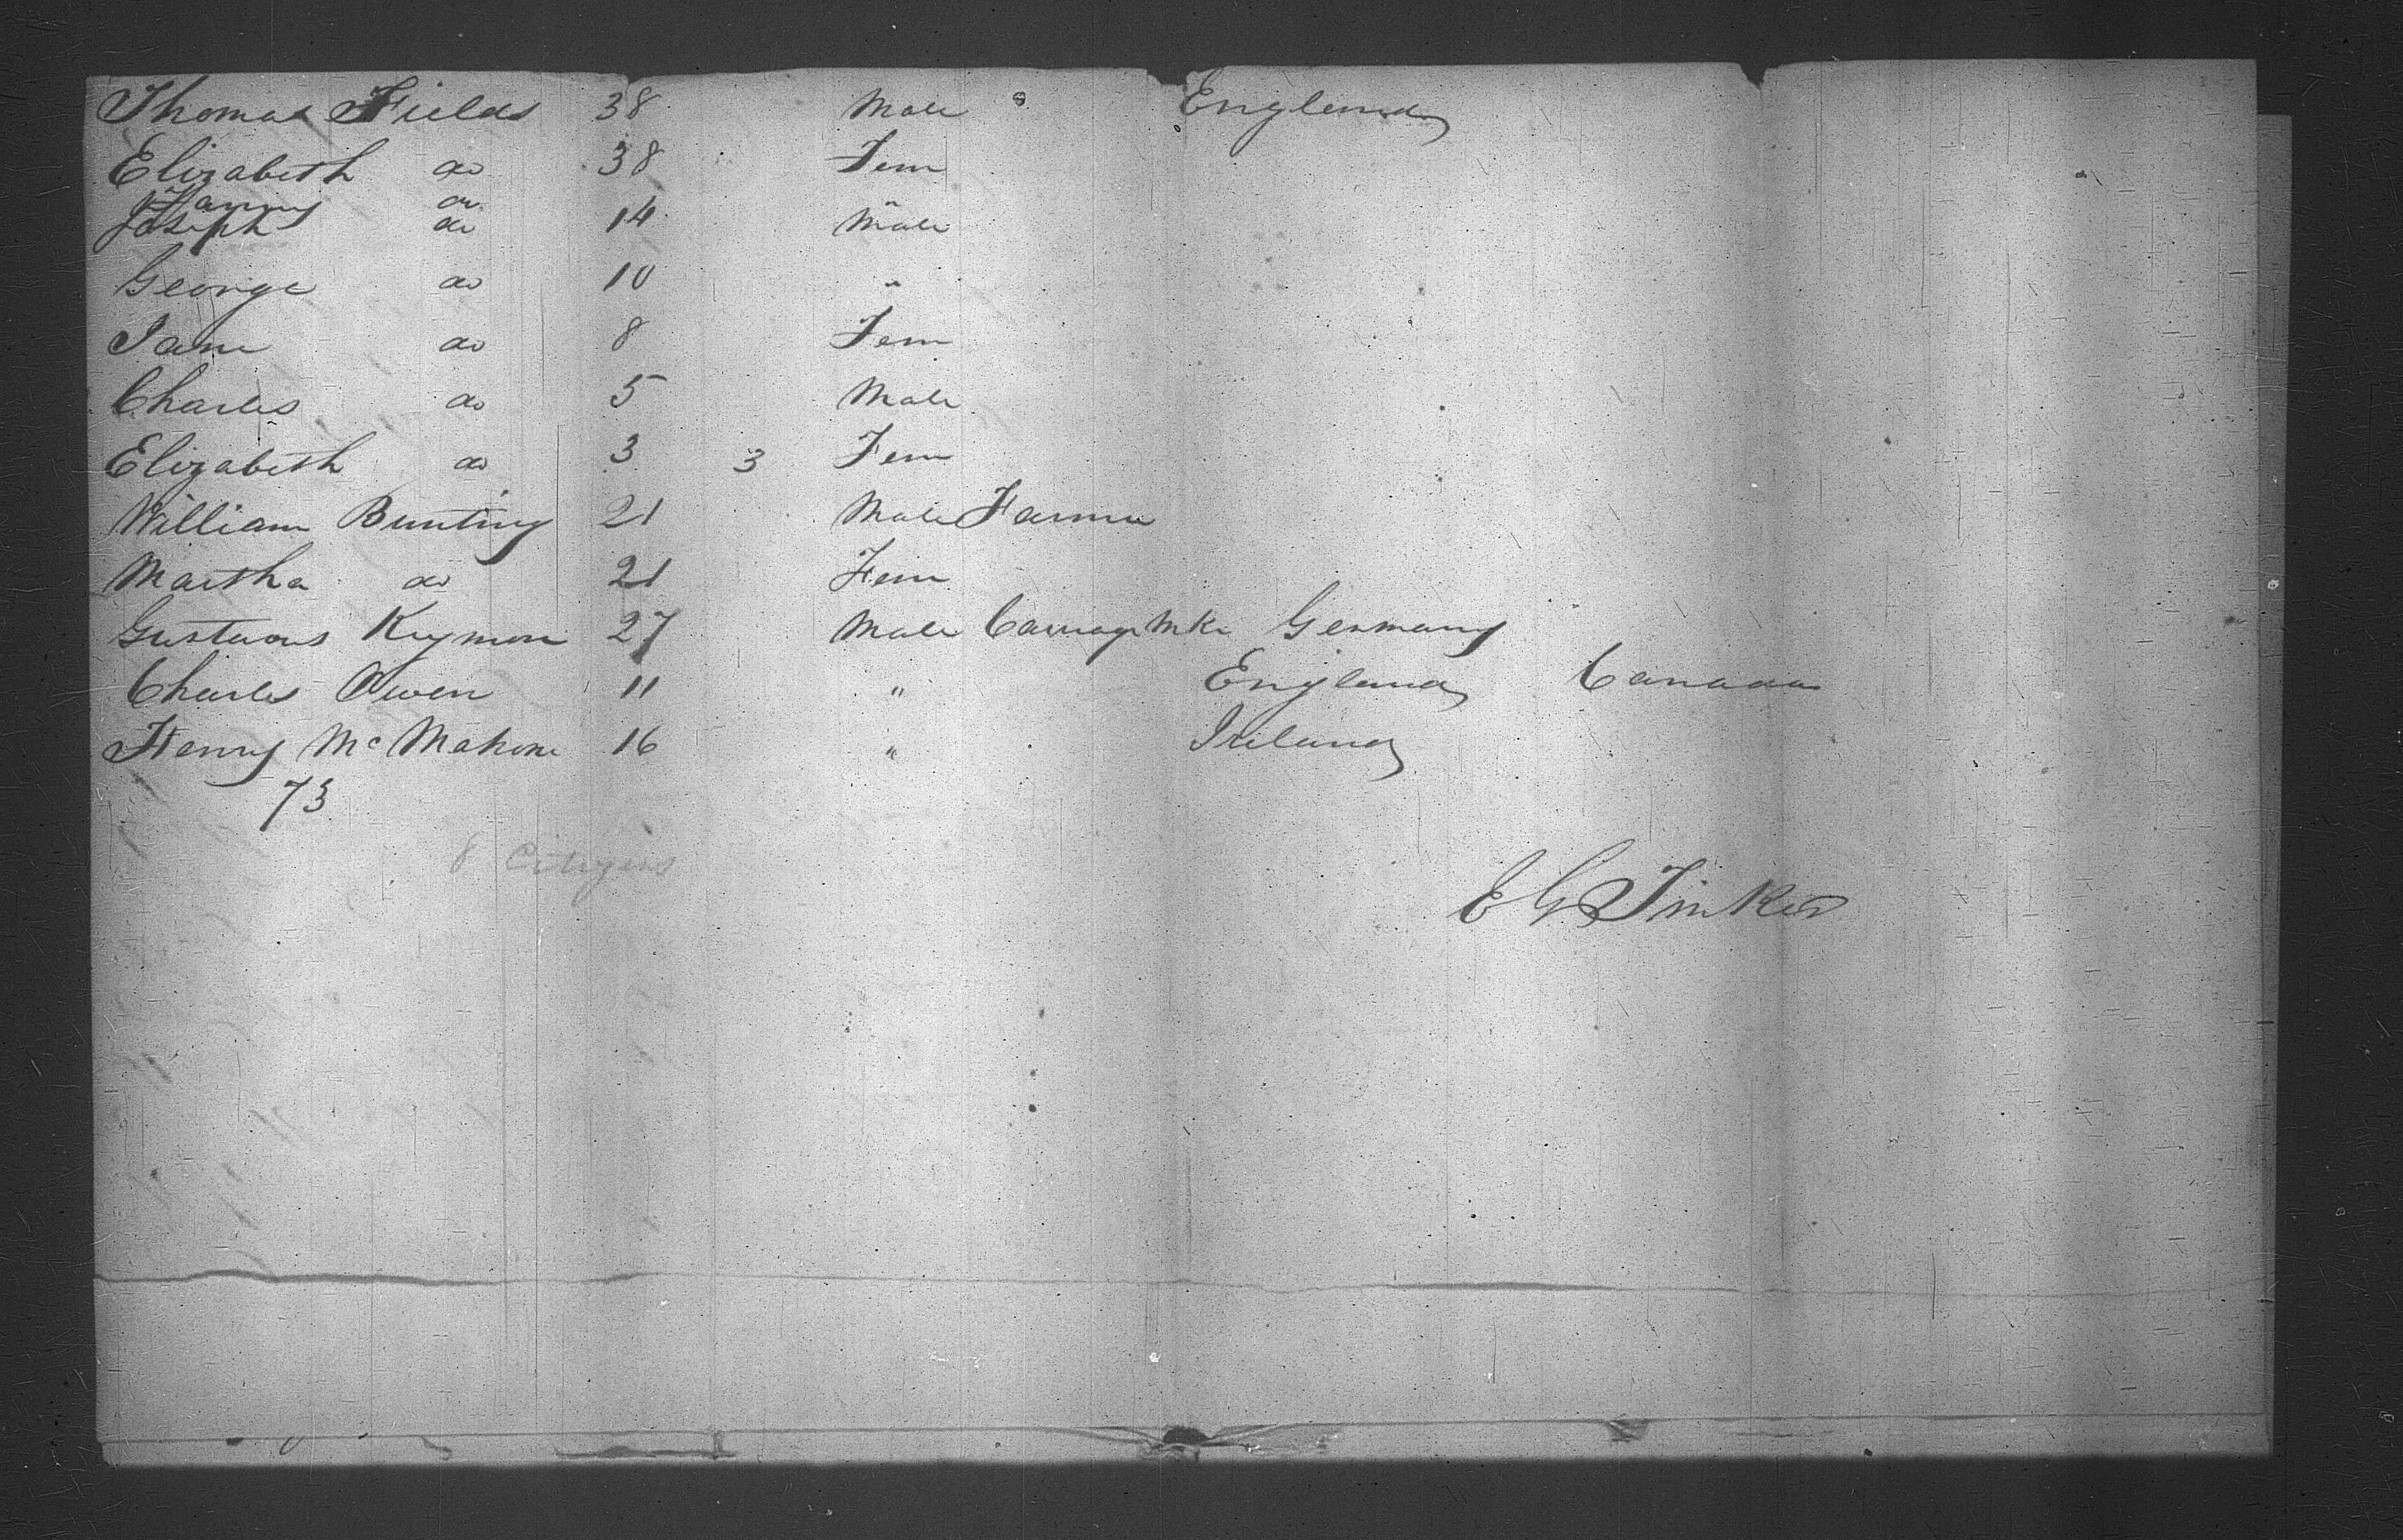 Thomas Fields 38 Male England
Elizabeth do 38 Fem
Fanny do "
Joseph do 14 Male
George do 10 "
Jane do 8 Fem
Charles do 5 Male
Elizabeth do 3 3 Fem
William Bunting 21 Male Farmer
Martha do 21 Fem
Gustavus Keymon 27 Male Carriage Mkr Germany
Charles Owen 11 " England Canada
Henry McMahone 16 " Ireland
73
8 Citizens
E G Tinker